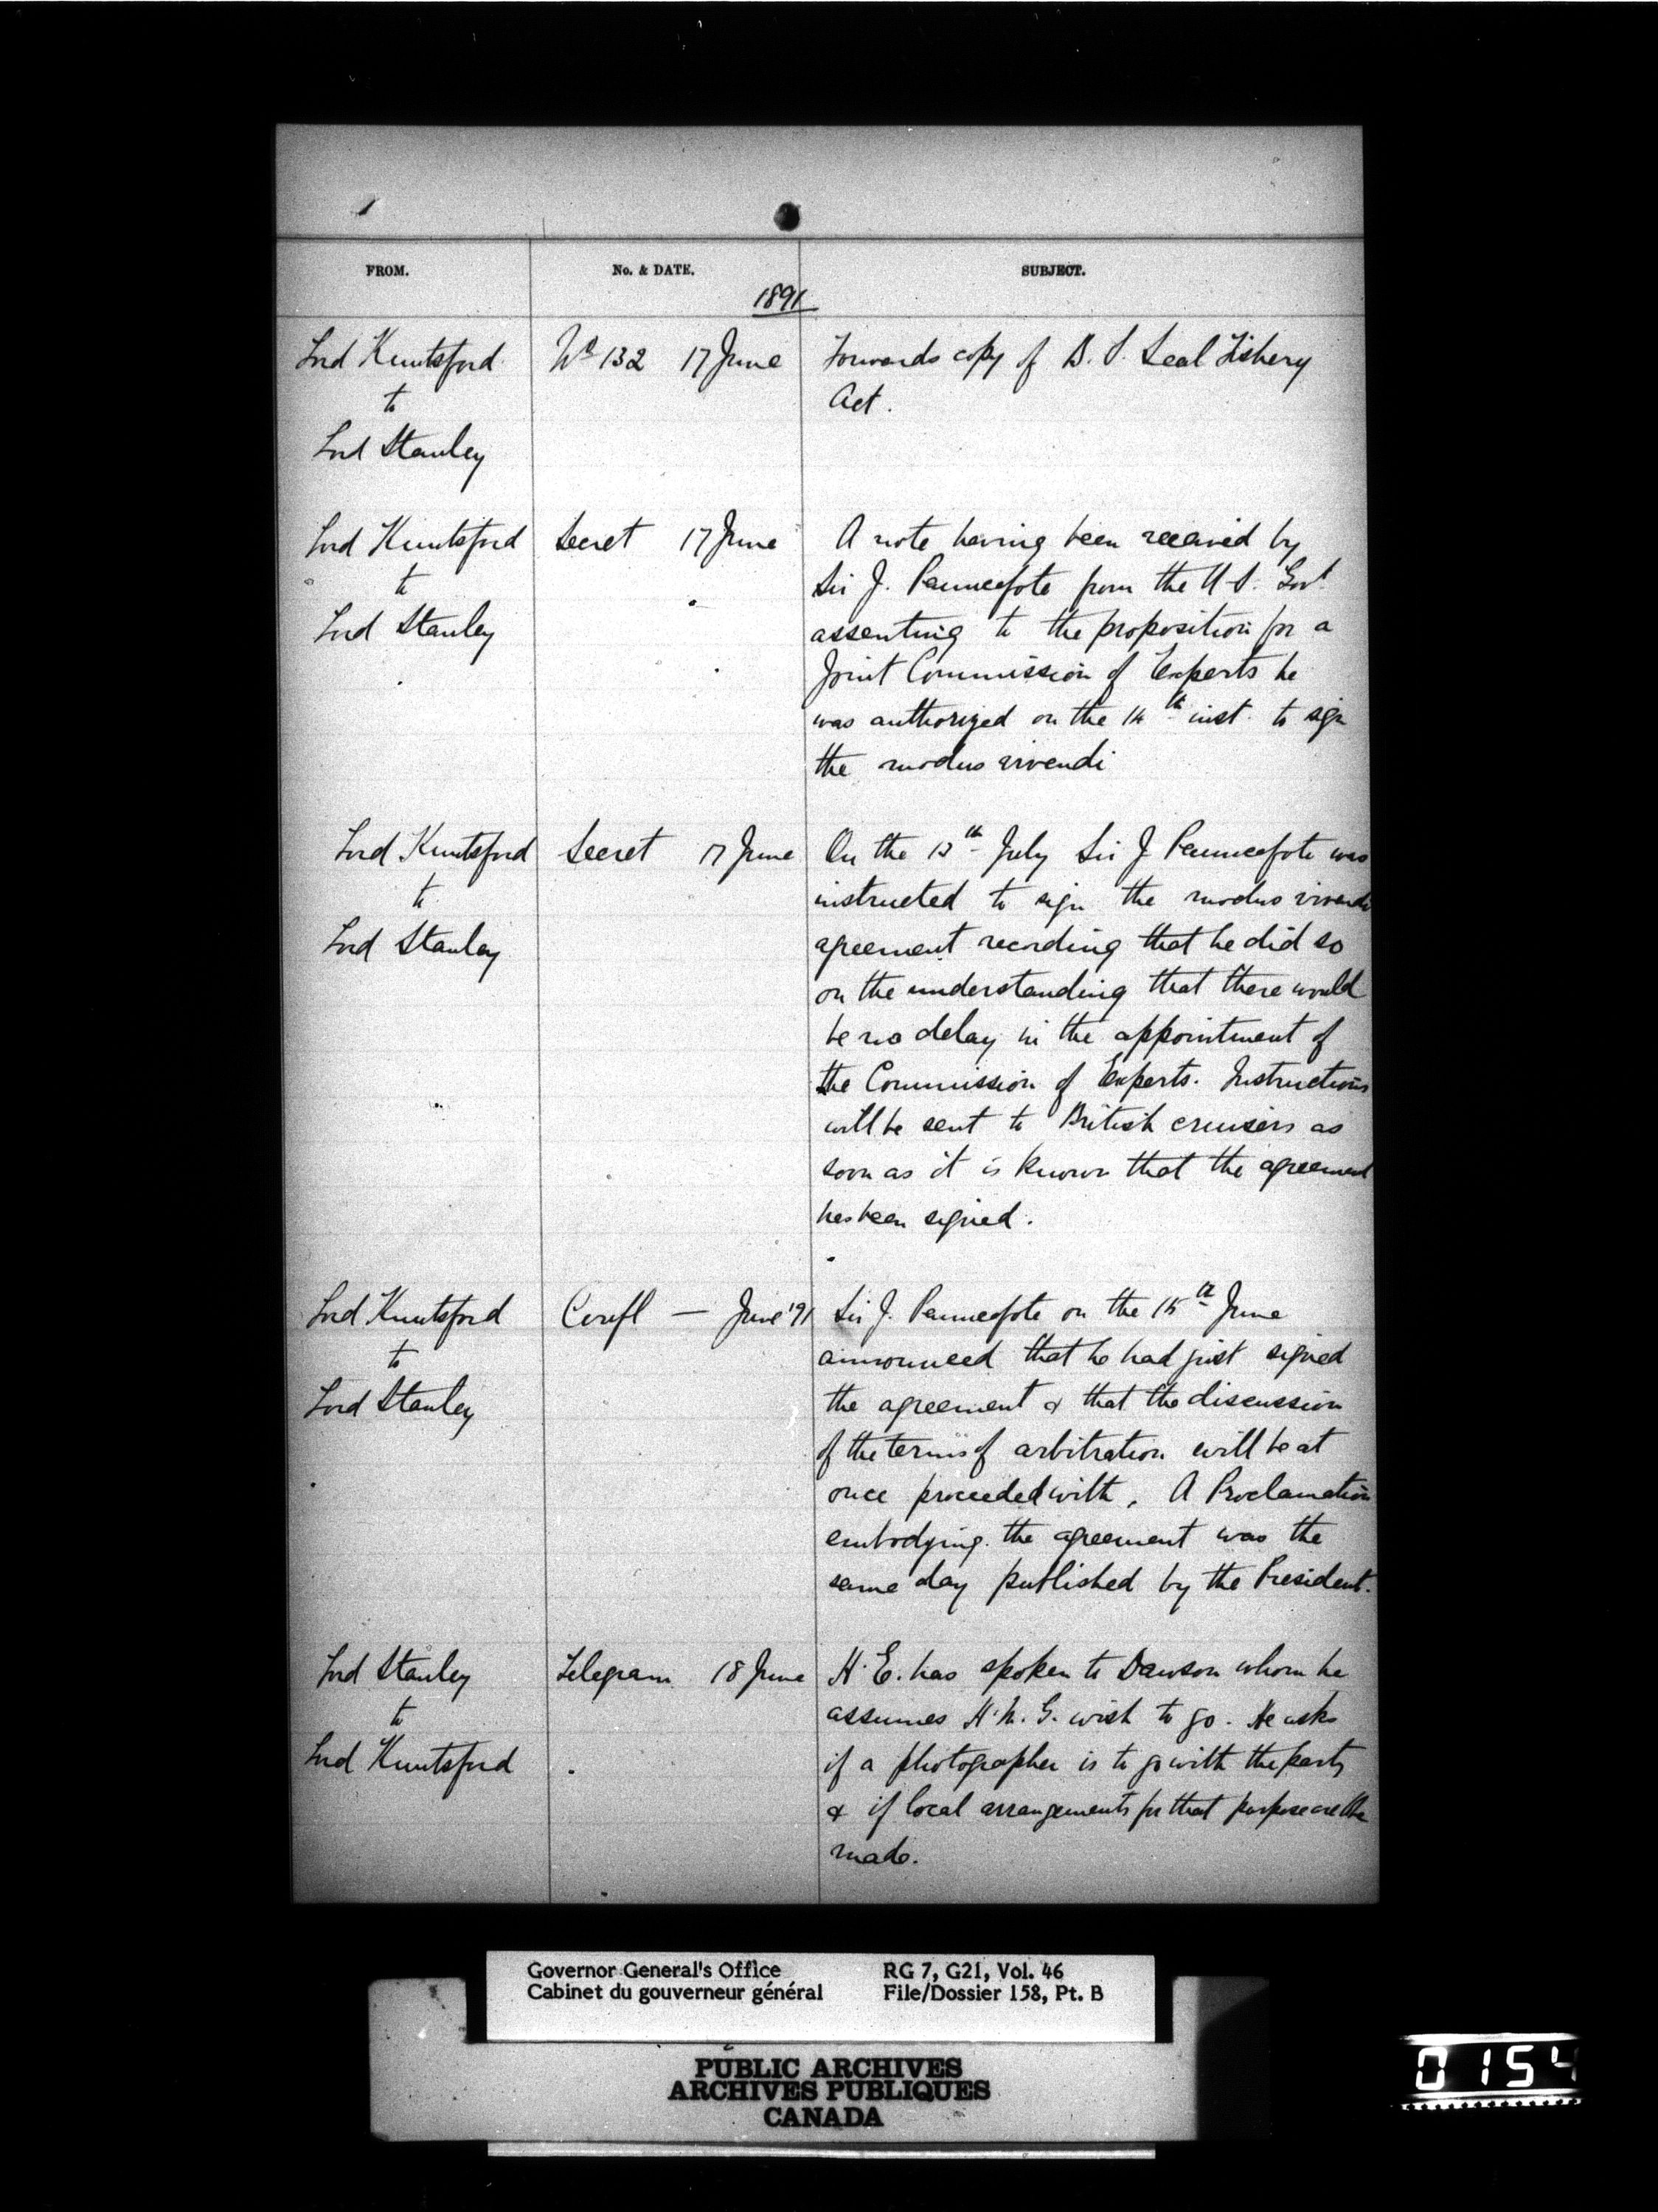 1
FROM. No. & DATE. SUBJECT.
1891
Lord Knutsford No 132 17 June Forwards copy of B. S. Seal Fishery
to Act.
Lord Stanley
Lord Knutsford Secret 17 June A note having been received by
to Sir J. Pauncefote from the U.S. Govt
Lord Stanley assenting to the proposition for a
Joint Commission of Experts he
was authorized on the 14th inst. to sign
the modus vivendi
Lord Knutsford Secret 17 June On the 13th July Sir J Pauncefote was
to instructed to sign the modus vivendi
Lord Stanley agreement recording that he did so
on the understanding that there would
be no delay in the appointment of
the Commission of Experts. Instructions
will be sent to British cruisers as
soon as it is known that the agreement
has been signed.
Lord Knutsford Confl — June '91 Sir J. Pauncefote on the 15th June
to announced that he had just signed
Lord Stanley the agreement & that the discussion
of the terms of arbitration will be at
once proceeded with. A Proclamation
embodying the agreement was the
same day published by the President.
Lord Stanley Telegram 18 June H.E. has spoken to Dawson whom he
to assumes H.M.G. wish to go. He asks
Lord Knutsford if a photographer is to go with the party
& if local arrangements for that purpose are to be
made.
Governor General's Office RG 7, G21, Vol. 46
Cabinet du gouverneur général File/Dossier 158, Pt. B
PUBLIC ARCHIVES
ARCHIVES PUBLIQUES
CANADA
0154